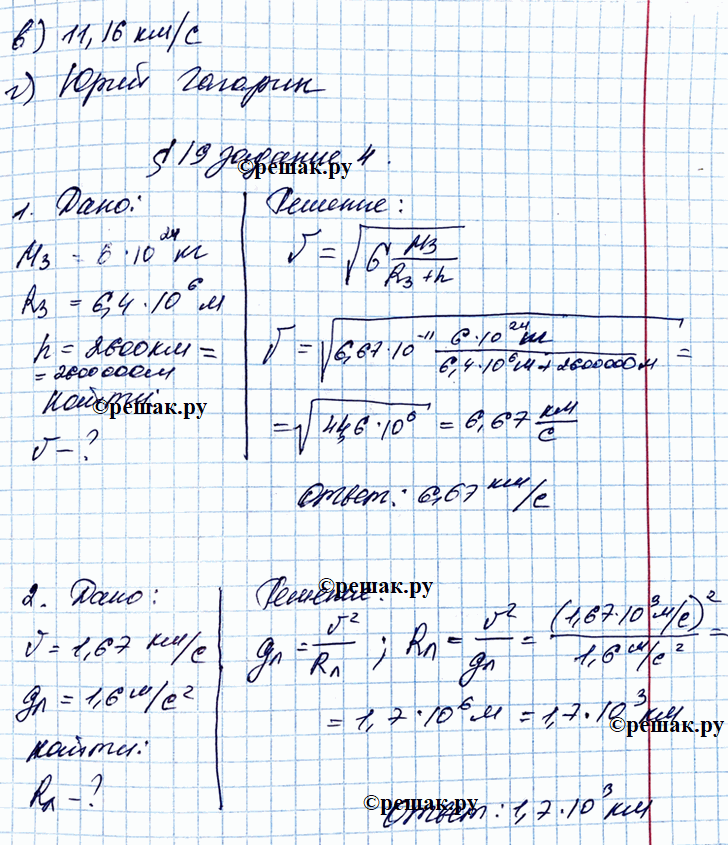 в) 11,16 км/с
г) Юрий Гагарин
§ 19 задание 4.
©решак.ру
1. Дано:
M₃ = 6·10²⁴ кг
R₃ = 6,4·10⁶ м
h = 2600 км =
= 2600000 м
Найти:
©решак.ру
v - ?
Решение:
v = √(G M₃/(R₃ + h))
v = √(6,67·10⁻¹¹ 6·10²⁴ кг/(6,4·10⁶ м + 2600000 м)) =
= √(44,6·10⁶) = 6,67 км/с
Ответ: 6,67 км/с
2. Дано:
v = 1,67 км/с
gл = 1,6 м/с²
Найти:
Rл - ?
©решак.ру
Решение:
gл = v²/Rл ; Rл = v²/gл = (1,67·10³ м/с)²/(1,6 м/с²) =
= 1,7·10⁶ м = 1,7·10³ км
©решак.ру
©решак.ру
Ответ: 1,7·10³ км